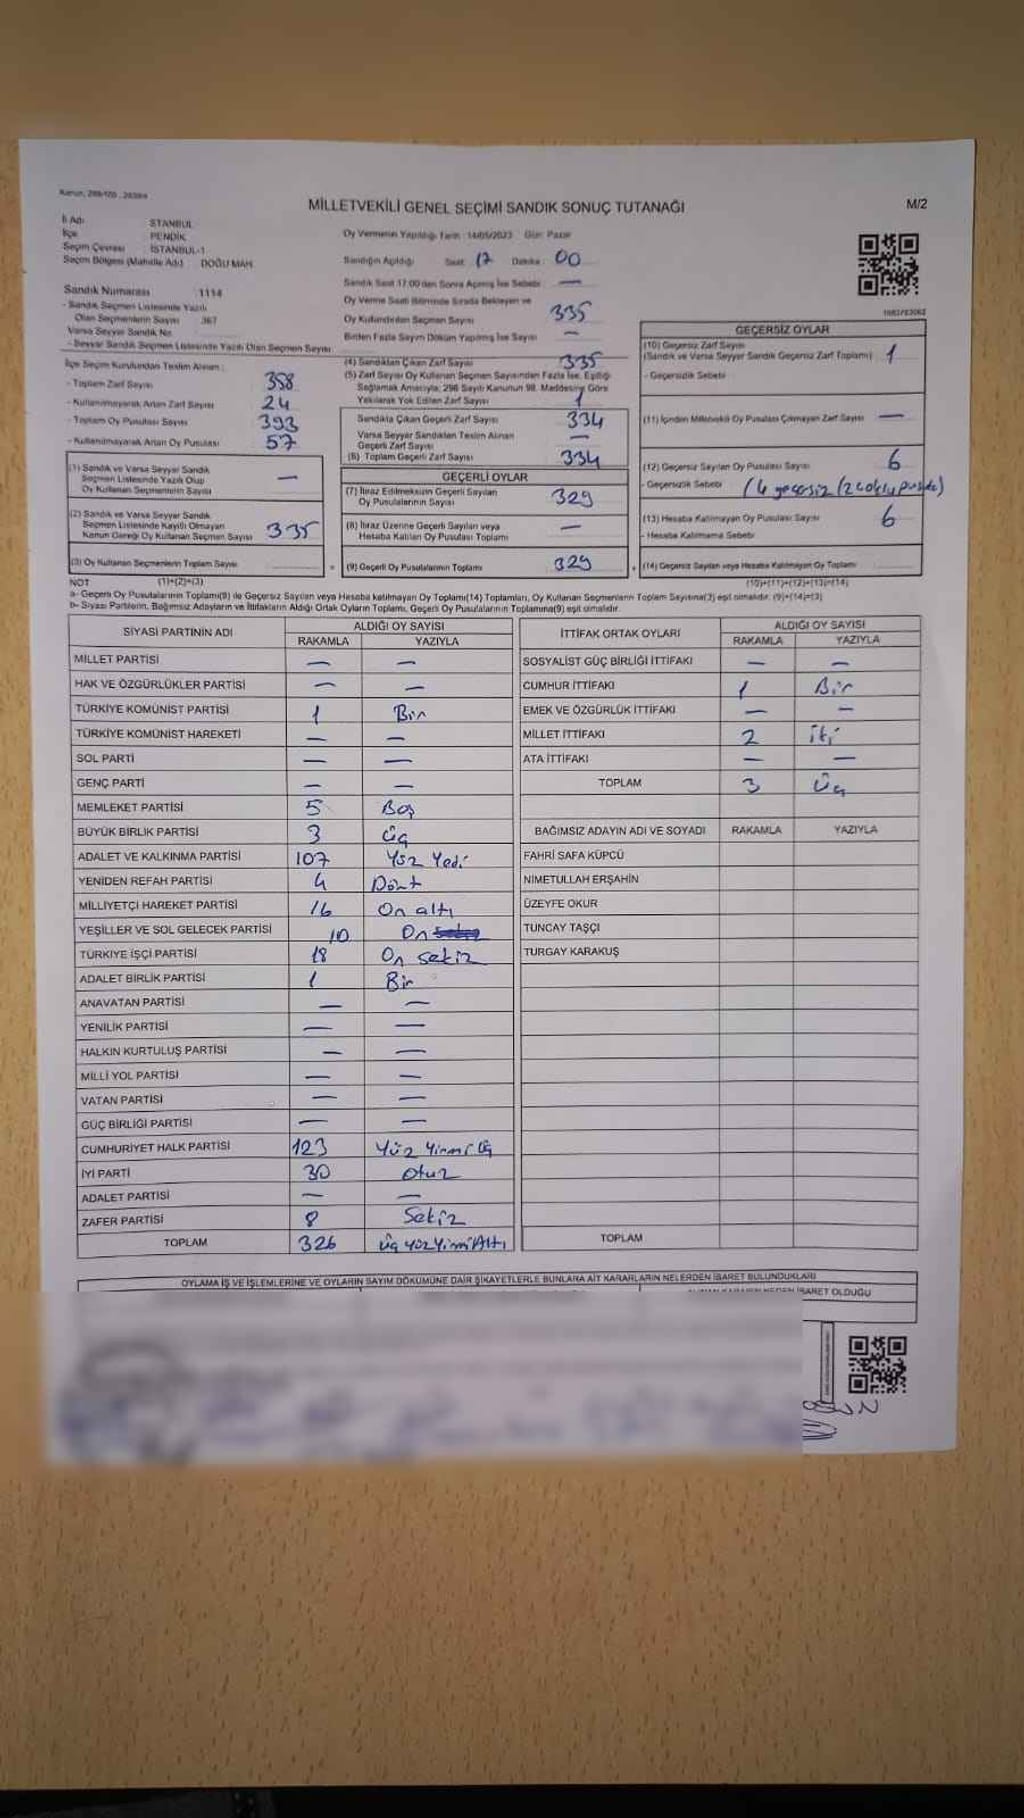 Kanun, 298/105 , 2839/4
MİLLETVEKİLİ GENEL SEÇİMİ SANDIK SONUÇ TUTANAĞI
M/2
İl Adı STANBUL
İlçe PENDİK
Seçim Çevresi İSTANBUL-1
Seçim Bölgesi (Mahalle Adı) DOĞU MAH
Sandık Numarası 1114
- Sandık Seçmen Listesinde Yazılı
Olan Seçmenlerin Sayısı 367
Varsa Seyyar Sandık No
- Seyyar Sandık Seçmen Listesinde Yazılı Olan Seçmen Sayısı
İlçe Seçim Kurulundan Teslim Alınan :
- Toplam Zarf Sayısı 358
- Kullanılmayarak Artan Zarf Sayısı 24
- Toplam Oy Pusulası Sayısı 393
- Kullanılmayarak Artan Oy Pusulası 57
(1) Sandık ve Varsa Seyyar Sandık
Seçmen Listesinde Yazılı Olup
Oy Kullanan Seçmenlerin Sayısı —
(2) Sandık ve Varsa Seyyar Sandık
Seçmen Listesinde Kayıtlı Olmayan
Kanun Gereği Oy Kullanan Seçmen Sayısı 335
(3) Oy Kullanan Seçmenlerin Toplam Sayısı
Oy Vermenin Yapıldığı Tarih : 14/05/2023 Gün: Pazar
Sandığın Açıldığı Saat : 17 Dakika : 00
Sandık Saat 17:00'den Sonra Açılmış İse Sebebi —
Oy Verme Saati Bitiminde Sırada Bekleyen ve
Oy Kullandırılan Seçmen Sayısı 335
Birden Fazla Sayım Döküm Yapılmış İse Sayısı —
(4) Sandıktan Çıkan Zarf Sayısı 335
(5) Zarf Sayısı Oy Kullanan Seçmen Sayısından Fazla İse, Eşitliği
Sağlamak Amacıyla; 298 Sayılı Kanunun 98. Maddesine Göre
Yakılarak Yok Edilen Zarf Sayısı 1
Sandıkta Çıkan Geçerli Zarf Sayısı 334
Varsa Seyyar Sandıktan Teslim Alınan
Geçerli Zarf Sayısı —
(6) Toplam Geçerli Zarf Sayısı 334
GEÇERLİ OYLAR
(7) İtiraz Edilmeksizin Geçerli Sayılan
Oy Pusulalarının Sayısı 329
(8) İtiraz Üzerine Geçerli Sayılan veya
Hesaba Katılan Oy Pusulası Toplamı —
(9) Geçerli Oy Pusulalarının Toplamı 329
GEÇERSİZ OYLAR
(10) Geçersiz Zarf Sayısı
(Sandık ve Varsa Seyyar Sandık Geçersiz Zarf Toplamı) 1
- Geçersizlik Sebebi
(11) İçinden Milletvekili Oy Pusulası Çıkmayan Zarf Sayısı —
(12) Geçersiz Sayılan Oy Pusulası Sayısı 6
- Geçersizlik Sebebi (4 geçersiz (2 çoklu pusula)
(13) Hesaba Katılmayan Oy Pusulası Sayısı 6
- Hesaba Katılmama Sebebi
(14) Geçersiz Sayılan veya Hesaba Katılmayan Oy Toplamı
NOT (1)+(2)=(3) (10)+(11)+(12)+(13)=(14)
a- Geçerli Oy Pusulalarının Toplamı(9) ile Geçersiz Sayılan veya Hesaba katılmayan Oy Toplamı(14) Toplamları, Oy Kullanan Seçmenlerin Toplam Sayısına(3) eşit olmalıdır. (9)+(14)=(3)
b- Siyasi Partilerin, Bağımsız Adayların ve İttifakların Aldığı Ortak Oyların Toplamı, Geçerli Oy Pusulalarının Toplamına(9) eşit olmalıdır.
SİYASİ PARTİNİN ADI ALDIĞI OY SAYISI
RAKAMLA YAZIYLA
MİLLET PARTİSİ — —
HAK VE ÖZGÜRLÜKLER PARTİSİ — —
TÜRKİYE KOMÜNİST PARTİSİ 1 Bir
TÜRKİYE KOMÜNİST HAREKETİ — —
SOL PARTİ — —
GENÇ PARTİ — —
MEMLEKET PARTİSİ 5 Beş
BÜYÜK BİRLİK PARTİSİ 3 Üç
ADALET VE KALKINMA PARTİSİ 107 Yüz Yedi
YENİDEN REFAH PARTİSİ 4 Dört
MİLLİYETÇİ HAREKET PARTİSİ 16 On altı
YEŞİLLER VE SOL GELECEK PARTİSİ 10 On
TÜRKİYE İŞÇİ PARTİSİ 18 On sekiz
ADALET BİRLİK PARTİSİ 1 Bir
ANAVATAN PARTİSİ — —
YENİLİK PARTİSİ — —
HALKIN KURTULUŞ PARTİSİ — —
MİLLİ YOL PARTİSİ — —
VATAN PARTİSİ — —
GÜÇ BİRLİĞİ PARTİSİ — —
CUMHURİYET HALK PARTİSİ 123 Yüz Yirmi Üç
İYİ PARTİ 30 otuz
ADALET PARTİSİ — —
ZAFER PARTİSİ 8 Sekiz
TOPLAM 326 üç yüz Yirmi Altı
İTTİFAK ORTAK OYLARI ALDIĞI OY SAYISI
RAKAMLA YAZIYLA
SOSYALİST GÜÇ BİRLİĞİ İTTİFAKI — —
CUMHUR İTTİFAKI 1 Bir
EMEK VE ÖZGÜRLÜK İTTİFAKI — —
MİLLET İTTİFAKI 2 iki
ATA İTTİFAKI — —
TOPLAM 3 Üç
BAĞIMSIZ ADAYIN ADI VE SOYADI RAKAMLA YAZIYLA
FAHRİ SAFA KÜPCÜ
NİMETULLAH ERŞAHİN
ÜZEYFE OKUR
TUNCAY TAŞÇI
TURGAY KARAKUŞ
TOPLAM
OYLAMA İŞ VE İŞLEMLERİNE VE OYLARIN SAYIM DÖKÜMÜNE DAİR ŞİKAYETLERLE BUNLARA AİT KARARLARIN NELERDEN İBARET BULUNDUKLARI
İBARET OLDUĞU